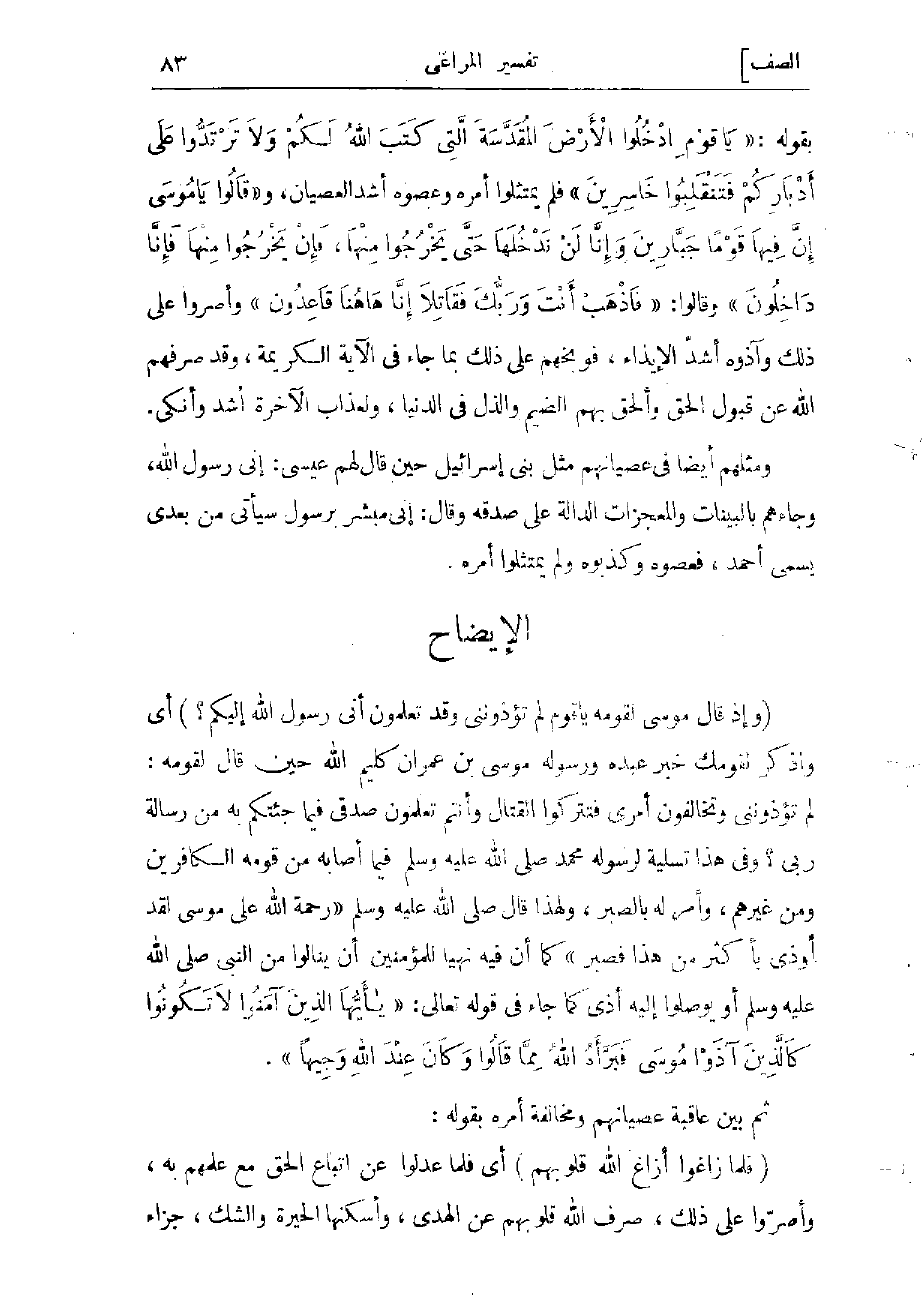 الصف] تفسير المراغى ٨٣
بقوله : « يَا قَوْمِ ادْخُلُوا الْأَرْضَ الْمُقَدَّسَةَ الَّتِى كَتَبَ اللهُ لَكُمْ وَلاَ تَرْتَدُّوا عَلَى
أَدْبَارِكُمْ فَتَنْقَلِبُوا خَاسِرِينَ » فلم يمتثلوا أمره وعصوه أشد العصيان، و«قَالُوا يَامُوسَى
إِنَّ فِيهَا قَوْمًا جَبَّارِينَ وَإِنَّا لَنْ نَدْخُلَهَا حَتَّى يَخْرُجُوا مِنْهَا ، فَإِنْ يَخْرُجُوا مِنْهَا فَإِنَّا
دَاخِلُونَ » وقالوا: « فَاذْهَبْ أَنْتَ وَرَبُّكَ فَقَاتِلاَ إِنَّا هَاهُنَا قَاعِدُون » وأصروا على
ذلك وآذوه أشدّ الإيذاء ، فوبخهم على ذلك بما جاء فى الآية الكريمة ، وقد صرفهم
الله عن قبول الحق وألحق بهم الضيم والذل فى الدنيا ، ولعذاب الآخرة أشد وأنكى.
ومثلهم أيضا فى عصيانهم مثل بنى إسرائيل حين قال لهم عيسى: إنى رسول الله،
وجاءهم بالبينات والمعجزات الدالة على صدقه وقال: إنى مبشر برسول سيأتى من بعدى
يسمى أحمد ، فعصوه وكذبوه ولم يمتثلوا أمره .
الإيضاح
(وإذ قال موسى لقومه ياقوم لم تؤذوننى وقد تعلمون أنى رسول الله إليكم؟ ) أى
واذكر لقومك خبر عبده ورسوله موسى بن عمران كليم الله حين قال لقومه :
لم تؤذوننى وتخالفون أمرى فتتركوا القتال وأنتم تعلمون صدقى فيما جئتكم به من رسالة
ربى ؟ وفى هذا تسلية لرسوله محمد صلى الله عليه وسلم فيما أصابه من قومه الكافرين
ومن غيرهم ، وأمر له بالصبر ، ولهذا قال صلى الله عليه وسلم «رحمة الله على موسى لقد
أوذى بأكثر من هذا فصبر » كما أن فيه نهيا للمؤمنين أن ينالوا من النبى صلى الله
عليه وسلم أو يوصلوا إليه أذى كما جاء فى قوله تعالى: « يٰأَيُّهَا الذِينَ آمَنُوا لاَ تَكُونُوا
كَالَّذِينَ آذَوْا مُوسَى فَبَرَّأَهُ اللهُ مِمَّا قَالُوا وَكَانَ عِنْدَ اللهِ وَجِيهاً » .
ثم بين عاقبة عصيانهم ومخالفة أمره بقوله :
( فلما زاغوا أزاغ الله قلوبهم ) أى فلما عدلوا عن اتباع الحق مع علمهم به ،
وأصرّوا على ذلك ، صرف الله قلوبهم عن الهدى ، وأسكنها الحيرة والشك ، جزاء